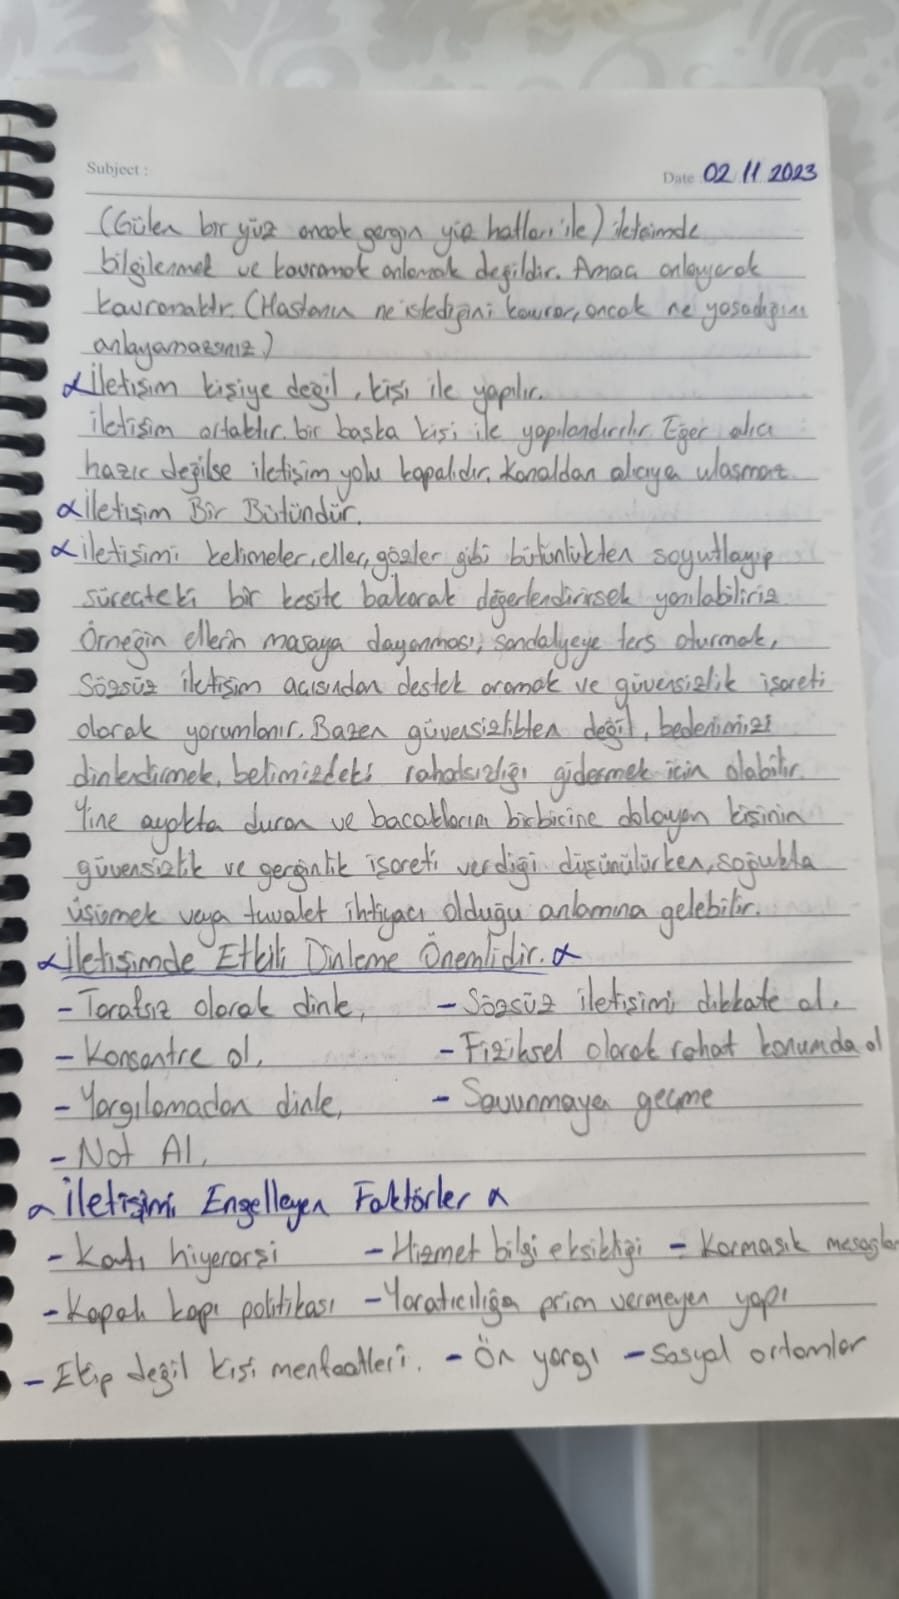 Subject :
Date 02 11 2023
(Gülen bir yüz ancak gergin yüz hatları ile) iletisimde
bilgilenmek ve kavramak anlamak değildir. Amaç anlayarak
kavramaktır. (Hastanın ne istediğini kavrar, ancak ne yaşadığını
anlayamazsınız)
α İletişim kişiye değil, kişi ile yapılır.
iletişim ortaktır. bir başka kişi ile yapılandırılır. Eğer alıcı
hazır değilse iletişim yolu kapalıdır. Kanaldan alıcıya ulaşmaz.
α İletişim Bir Bütündür.
α iletişimi kelimeler, eller, gözler gibi bütünlükten soyutlayıp
süreçteki bir kesite bakarak değerlendirirsek yanılabiliriz.
Örneğin ellerin masaya dayanması, sandalyeye ters oturmak,
Sözsüz iletişim açısından destek aramak ve güvensizlik işareti
olarak yorumlanır. Bazen güvensizlikten değil, bedenimizi
dinlendirmek, belimizdeki rahatsızlığı gidermek için olabilir.
Yine ayakta duran ve bacaklarını birbirine dolayan kişinin
güvensizlik ve gerginlik işareti verdiği düşünülürken, soğukta
üşümek veya tuvalet ihtiyacı olduğu anlamına gelebilir.
α İletişimde Etkili Dinleme Önemlidir. α
- Tarafsız olarak dinle, - Sözsüz iletişimi dikkate al.
- Konsantre ol, - Fiziksel olarak rahat konumda ol
- Yargılamadan dinle, - Savunmaya geçme
- Not Al,
α İletişimi Engelleyen Faktörler α
- Katı hiyerarşi - Hizmet bilgi eksikliği - Karmaşık mesajlar
- Kapalı kapı politikası - Yaratıcılığa prim vermeyen yapı
- Ekip değil kişi menfaatleri. - Ön yargı - Sosyal ortamlar